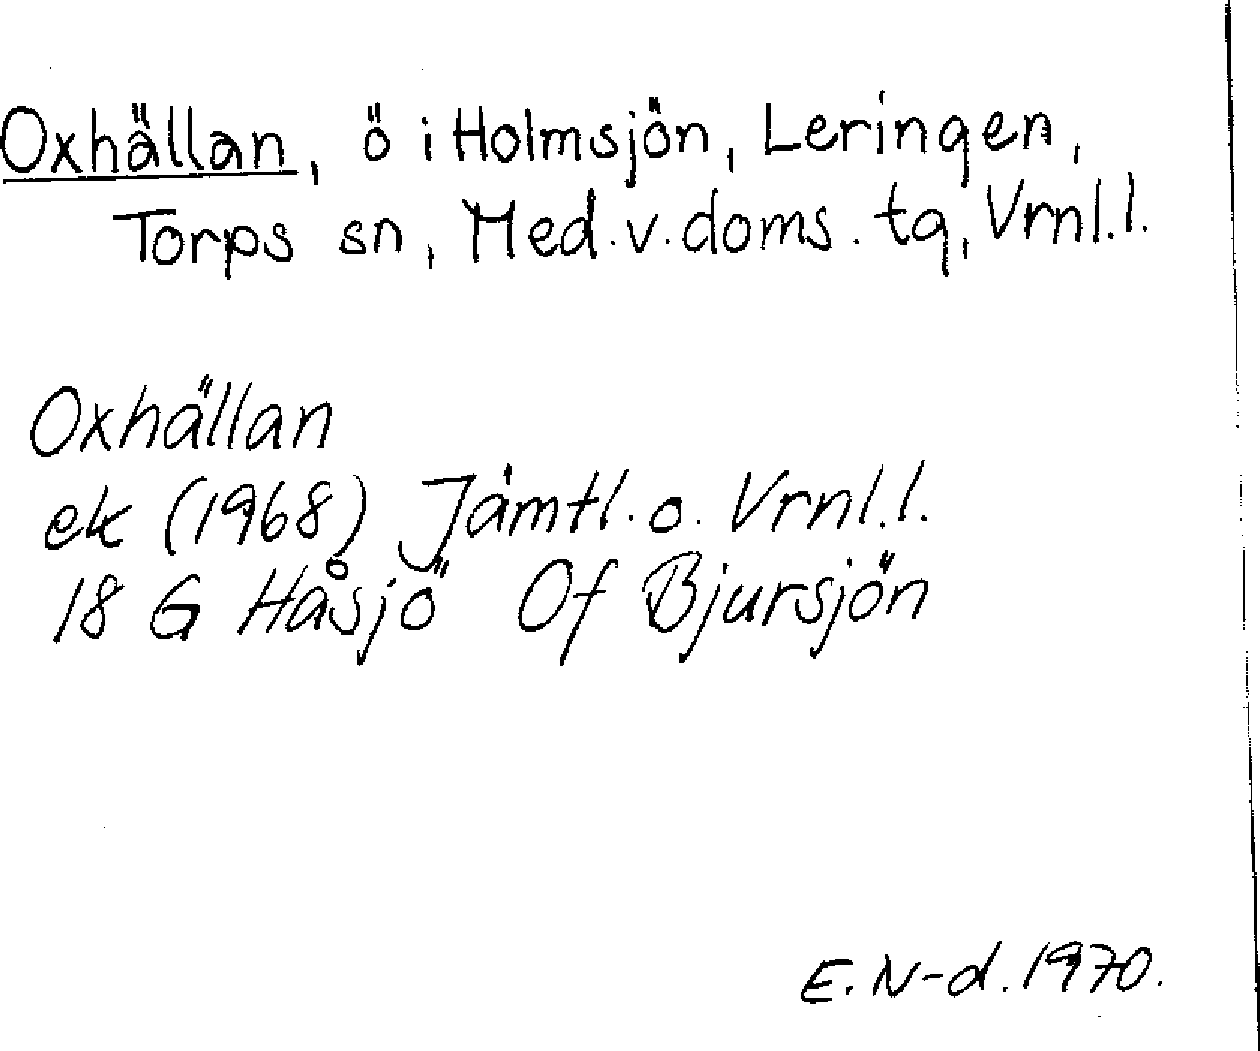 Oxhällan, ö i Holmsjön, Leringen,
Torps sn, Med.v.doms.tg, Vrnl.l.
Oxhällan
ek (1968) Jämtl. o. Vrnl.l.
18 G Håsjö Of Bjursjön
E. N-d. 1970.